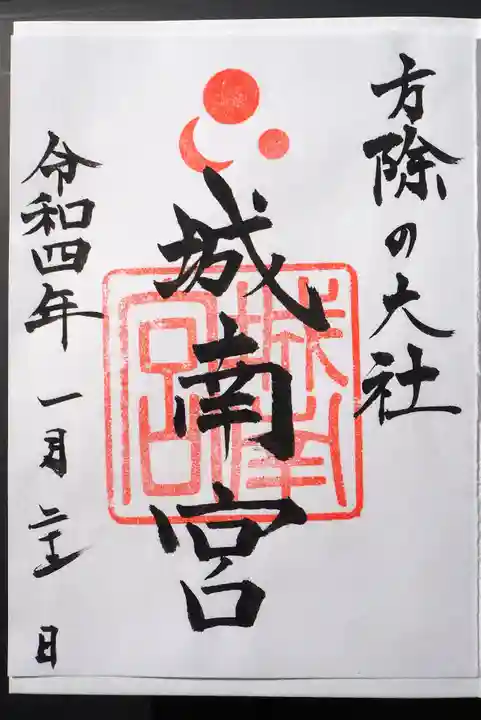 方除の大社
城南宮
城南宮
令和四年 一月 二十五 日